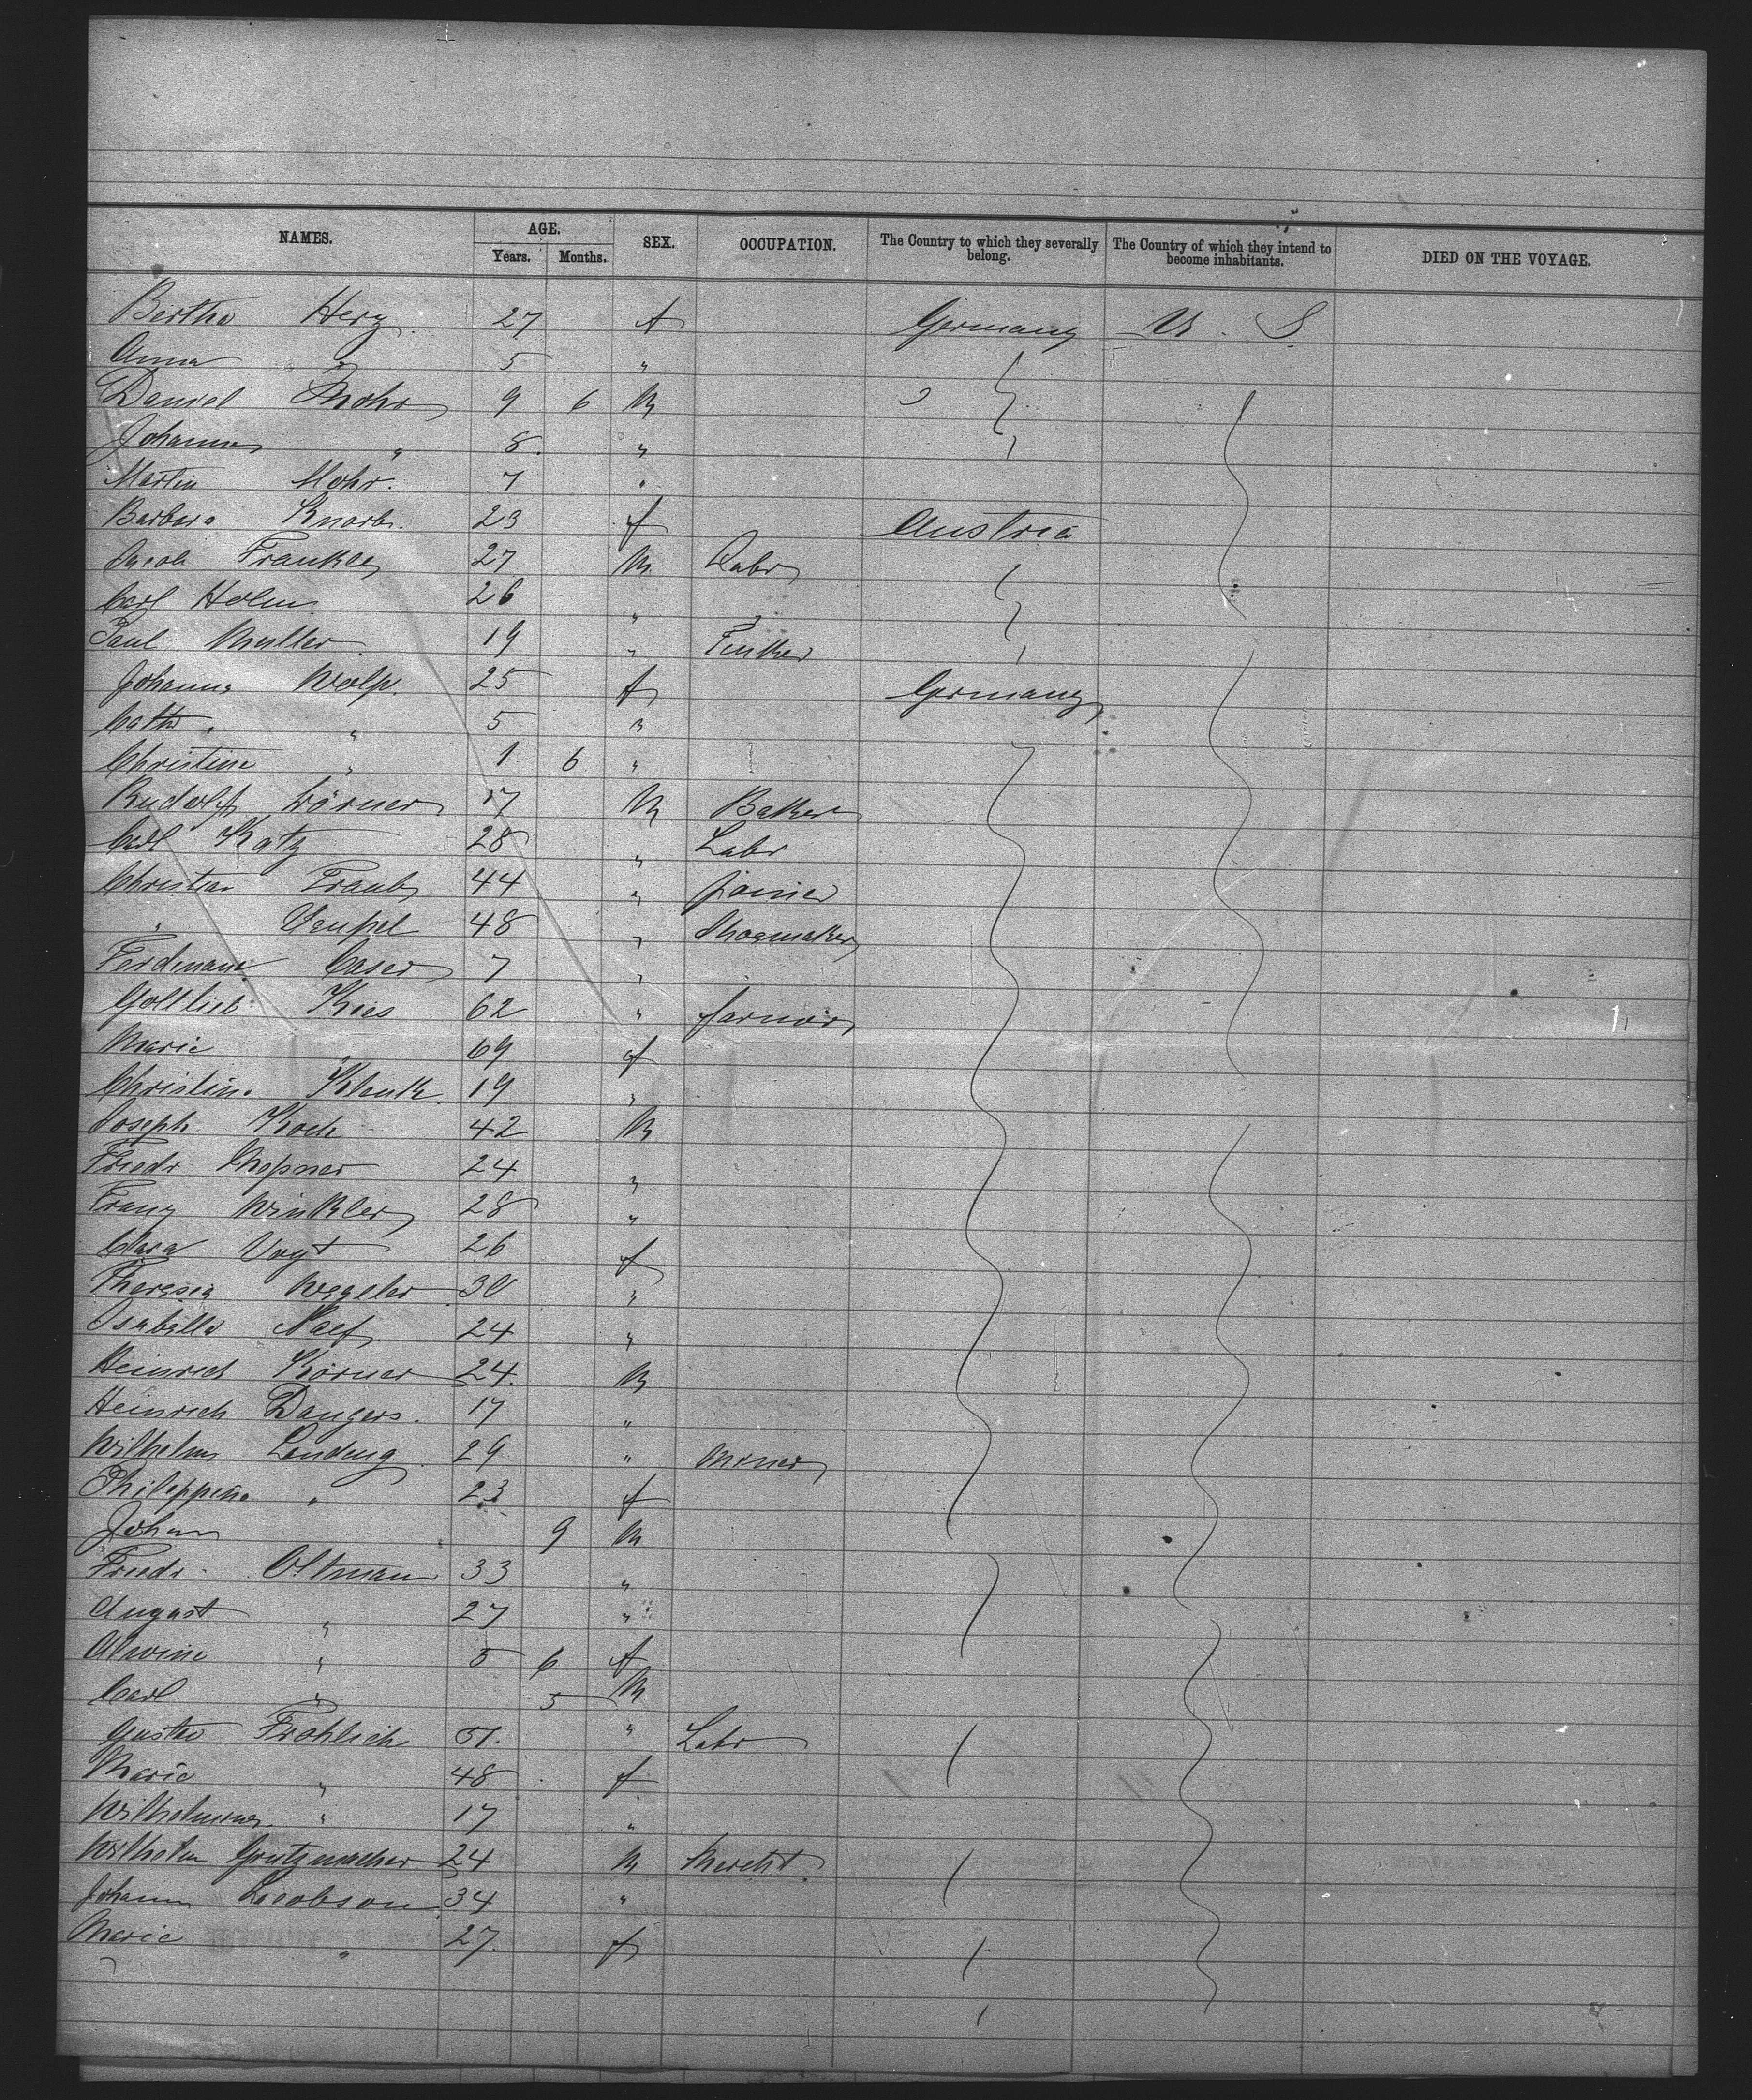 NAMES. AGE. Years. Months. SEX. OCCUPATION. The Country to which they severally belong. The Country of which they intend to become inhabitants. DIED ON THE VOYAGE.
Bertha Herz 27 f Germany U. S.
Anna " 5 "
Daniel Mohr 9 6 M
Johannes " 8 "
Martin Mohr. 7 "
Barbara 23 f Austria
Jacob Frankley 27 M Labr
Carl Holm 26 "
Paul Muller 19 "
Johanna Wolp. 25 f Germany
Cath. " 5 "
Christine " 1 6 "
Rudolf Körner 17 M Baker
Carl Katz 28 " Labr
Christian Traub 44 " joiner
" 48 " Shoemaker
Ferdinand Caser 7 "
Gottlieb Kies 62 " farmer
Marie " 69 f
Christine Klenk 19 "
Joseph Koch 42 M
Friedr 24 "
Franz Winkler 28 "
Clara Vogt 26 f
Theresia Wegeler 30 "
Isabella Naef 24 "
Heinrich Körner 24 M
Heinrich Dangers. 17 "
Wilhelm 29 " Miner
Philippine " 23 f
Johan 9 M
Friedr. Oltmann 33 "
August " 27 "
Alwine " 5 6 f
Carl " 5 M
Gustav Frohlich 51. " Labr
Marie " 48 f
Wilhelmine " 17 "
Wilhelm Grutzmacher 24 M Mercht.
Johann Jacobson 34 "
Marie " 27 f